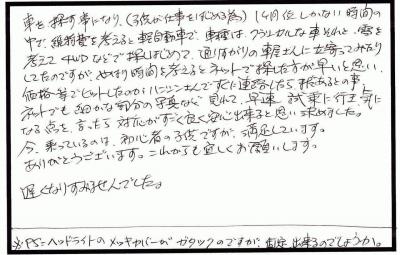 車を探す事になり、(子供が仕事をはじめる為) 1ヶ月位しかない時間の
中で、維持費を考えると軽自動車で、車種は、クラシカルな車、それと、雪を
考えて 4WDなどで探しはじめて、通りがかりの車屋さんに立寄ってみたり
してたのですが、やはり時間を考えるとネットで探した方が早いと思い、
価格等でヒットしたのが すぐに連絡したら、
ネットでも細かな部分の写真など見れて、早速、試乗に行き、気に
なる点を、言ったら対応がすごく良く安心出来ると思い決めました。
今、乗っているのは、初心者の子供ですが、満足しています。
ありがとうございます。これからも宜しくお願いします。
遅くなりすみませんでした。
※PS=ヘッドライトのメッキカバーがガタつくのですが、固定出来るのでしょうか。